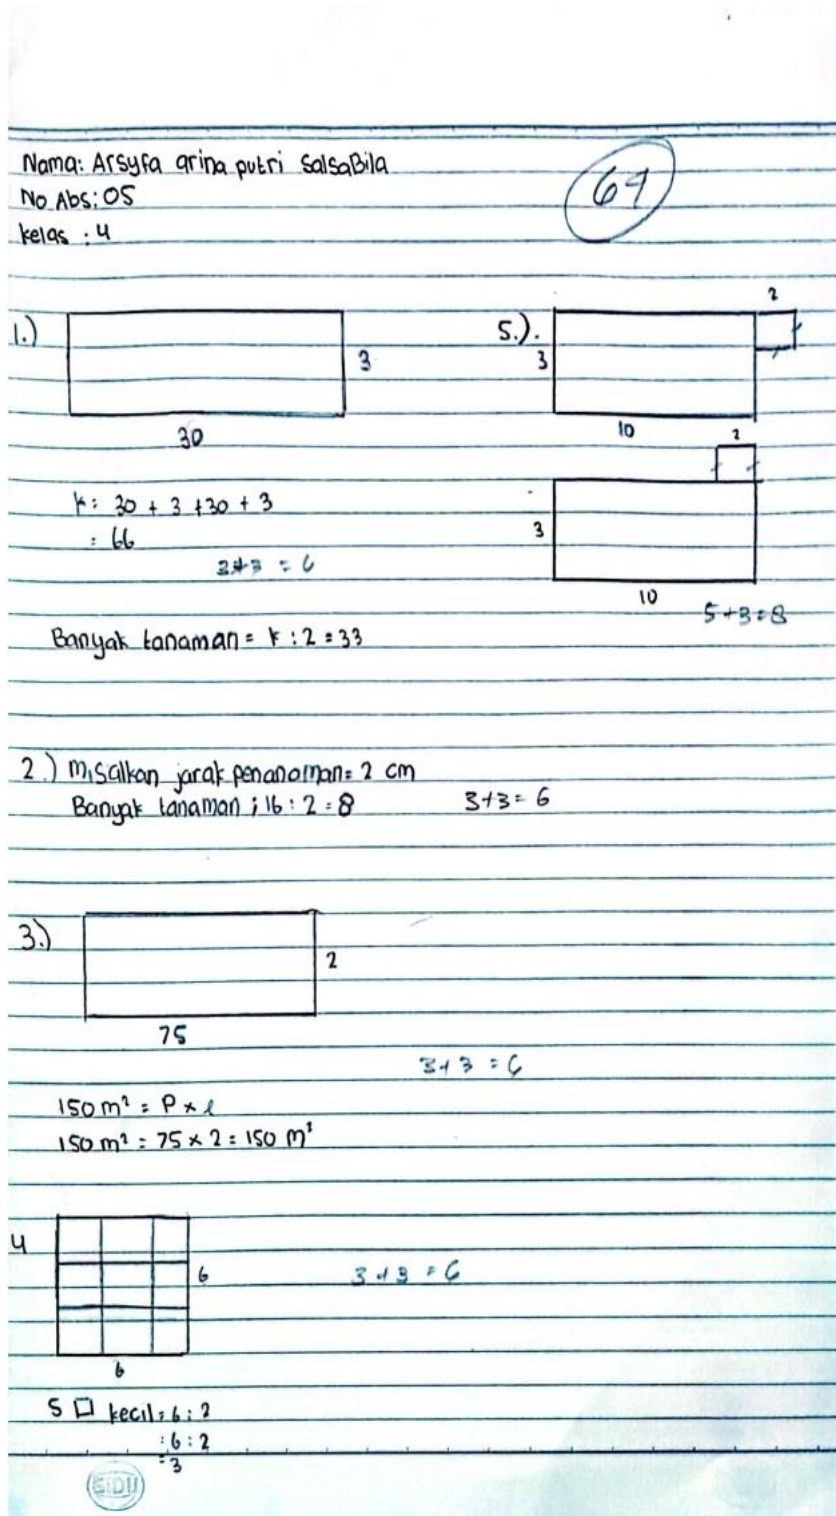 Nama: Arsyfa arina putri SalsaBila
No Abs: 05
kelas : 4
69
1.)
3
30
k: 30 + 3 +30 + 3
: 66
3+3 = 6
Banyak tanaman = k : 2 = 33
2.) Misalkan jarak penanaman= 2 cm
Banyak tanaman ; 16 : 2 = 8
3+3= 6
3.)
2
75
3+3 = 6
150 m² = P x l
150 m² = 75 x 2 = 150 m²
4
6
6
3+3 = 6
S □ kecil = 6 : 2
: 6 : 2
= 3
5.).
2
3
10
2
3
10
5+3=8
SIDU